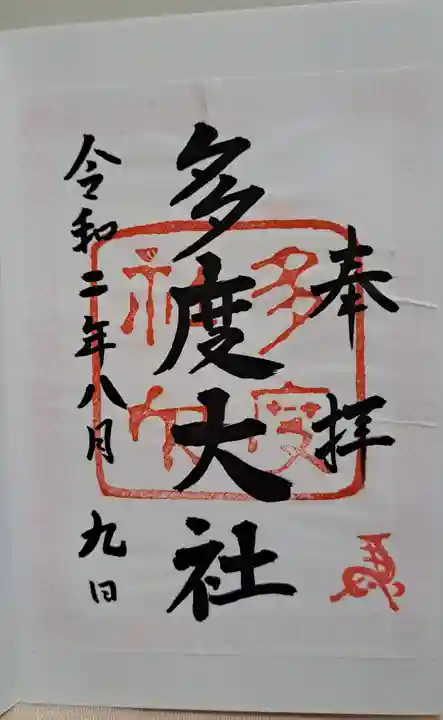 奉拝
多度大社
令和二年八月九日
多度